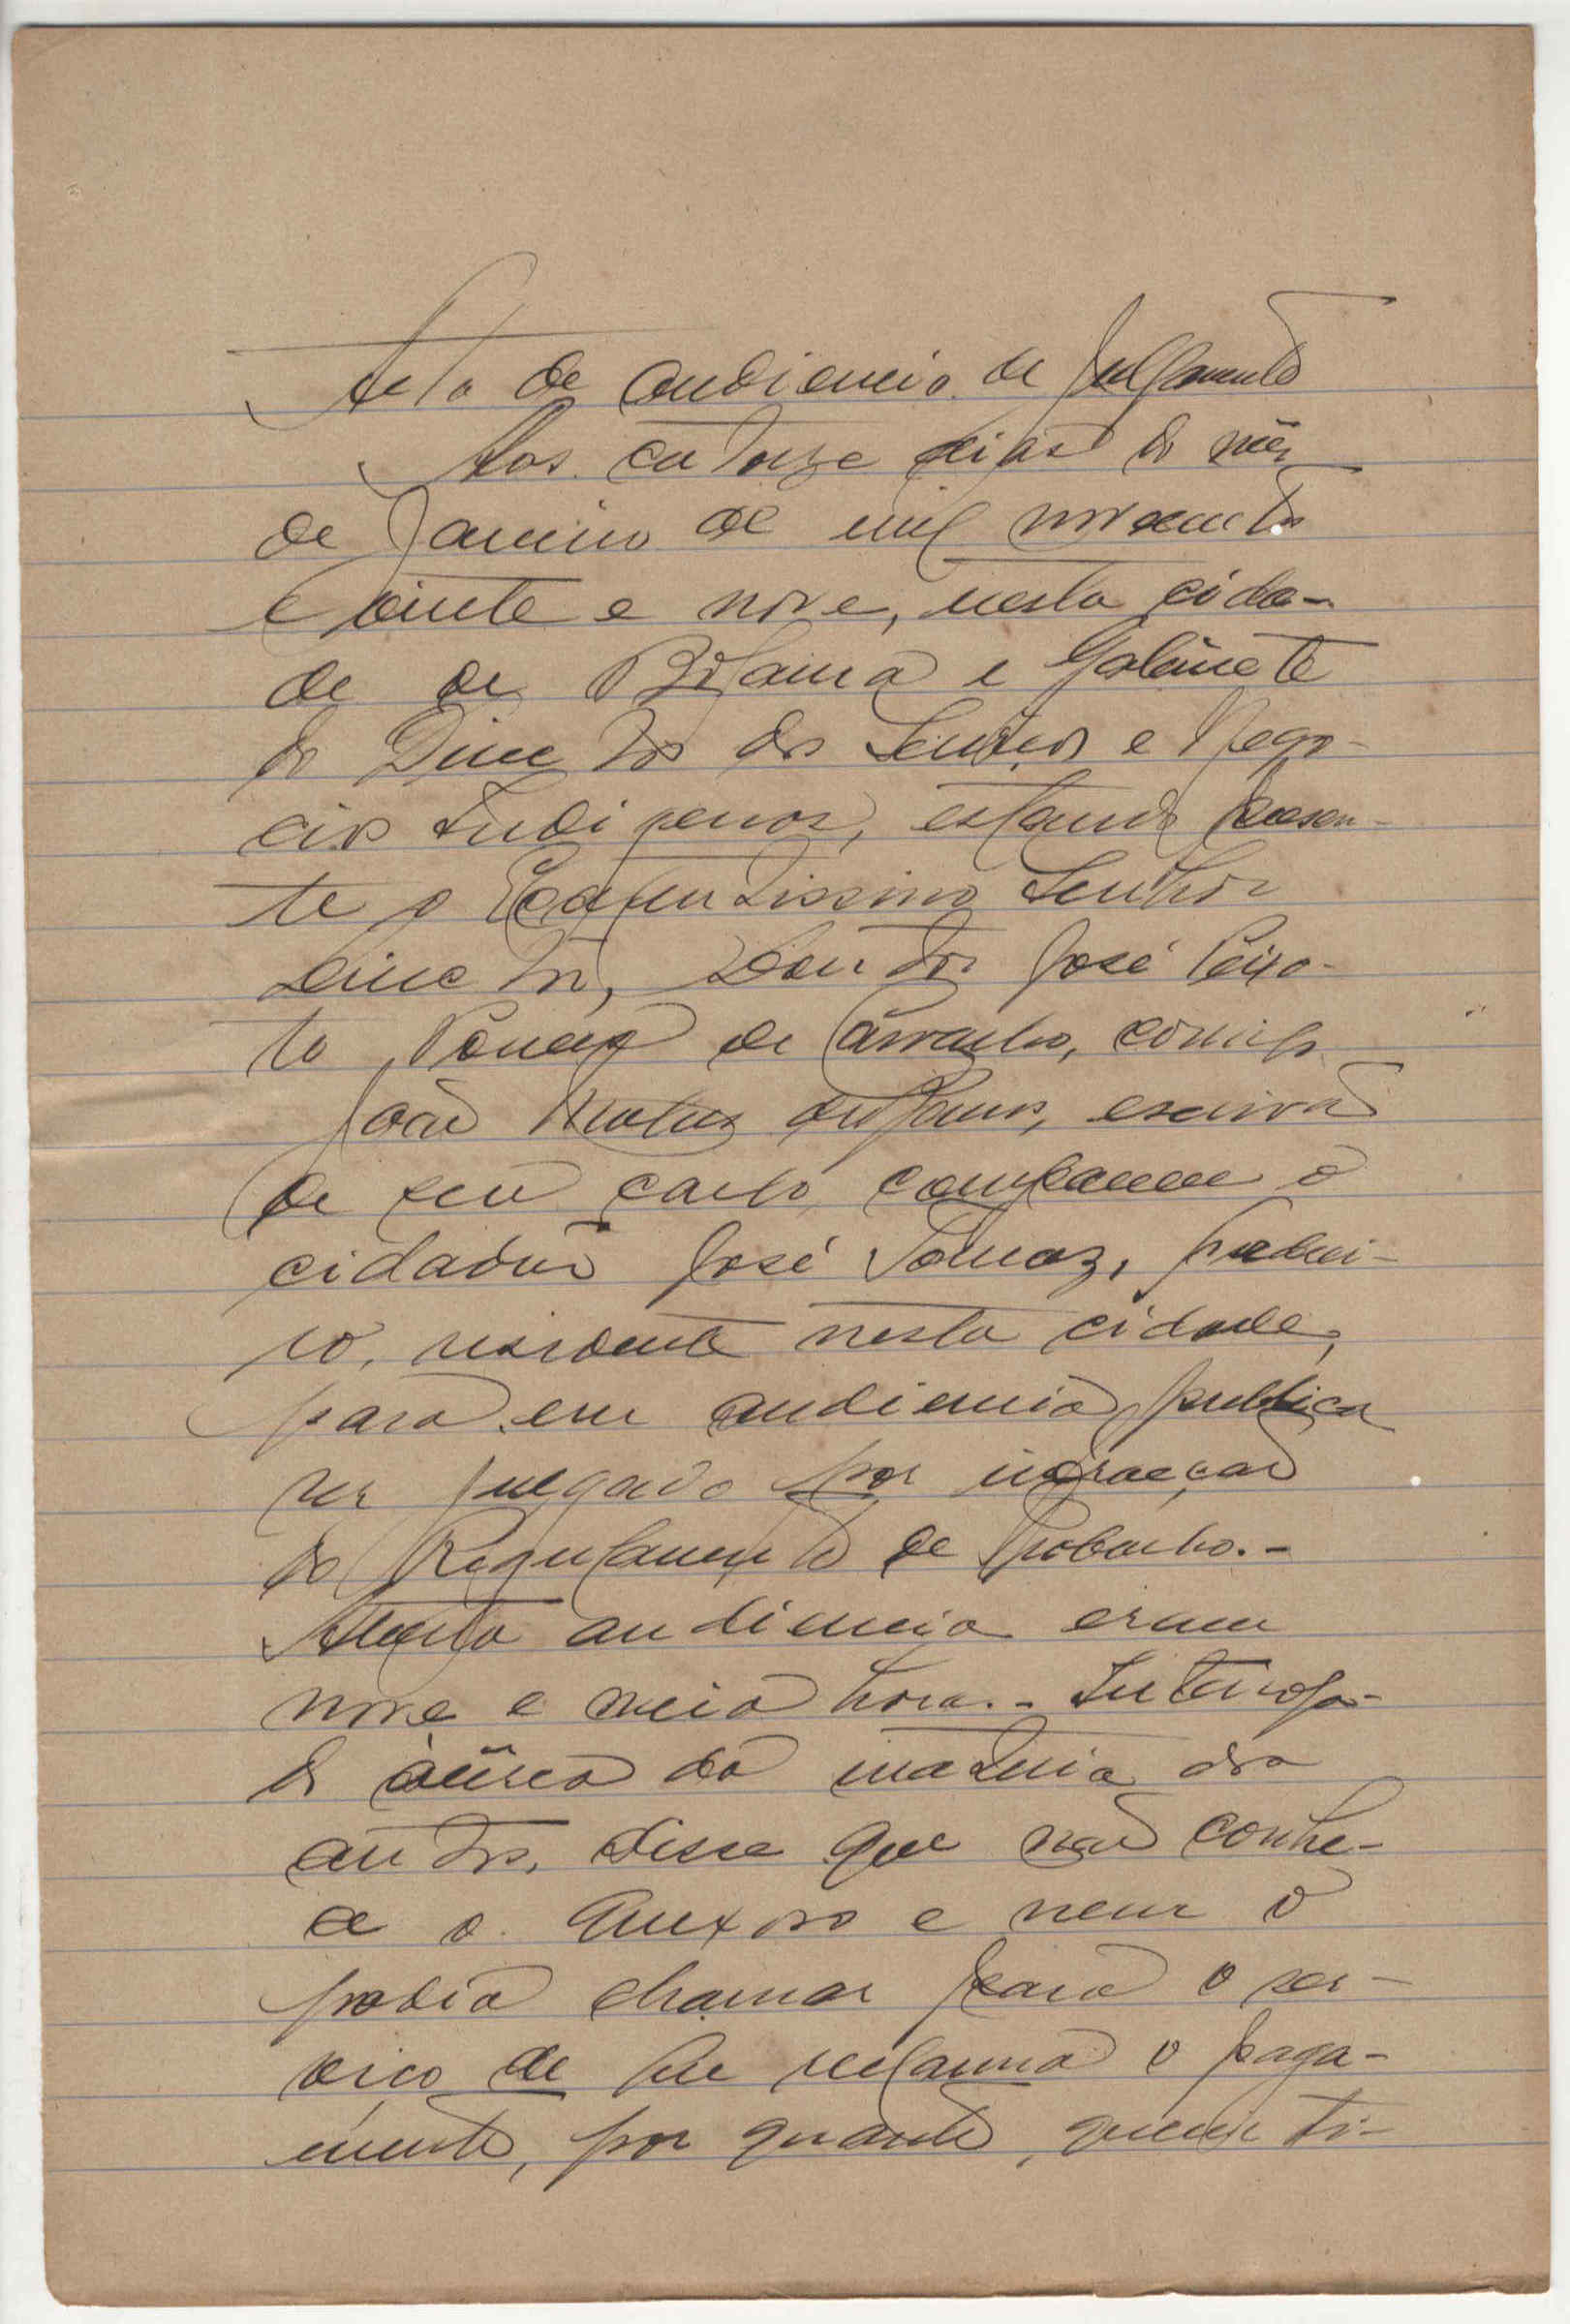 Acta de audiencia de julgamento
Aos catorze dias do mês
de Janeiro de mil novecentos
e vinte e nove, nesta cida-
de de Bolama e Gabinete
do Director dos Serviços e Nego-
cios Indigenas, estando presen-
te o Excelentissimo Senhor
Director, Doutor José Peixo-
to Ponces de Carvalho, comigo
João Mateus, escrivão
de seu cargo, compareceu o
cidadão José Tomaz, pedrei-
ro, residente nesta cidade,
para em audiencia publica
ser julgado por infracção
do Regulamento de Trabalho.-
Aberta audiencia eram
nove e meia hora.- Interroga-
do àcêrca da materia dos
autos, disse que não conhe-
ce o queixoso e nem o
podia chamar para o ser-
viço de que reclama o paga-
mento, por quanto, quem ti-